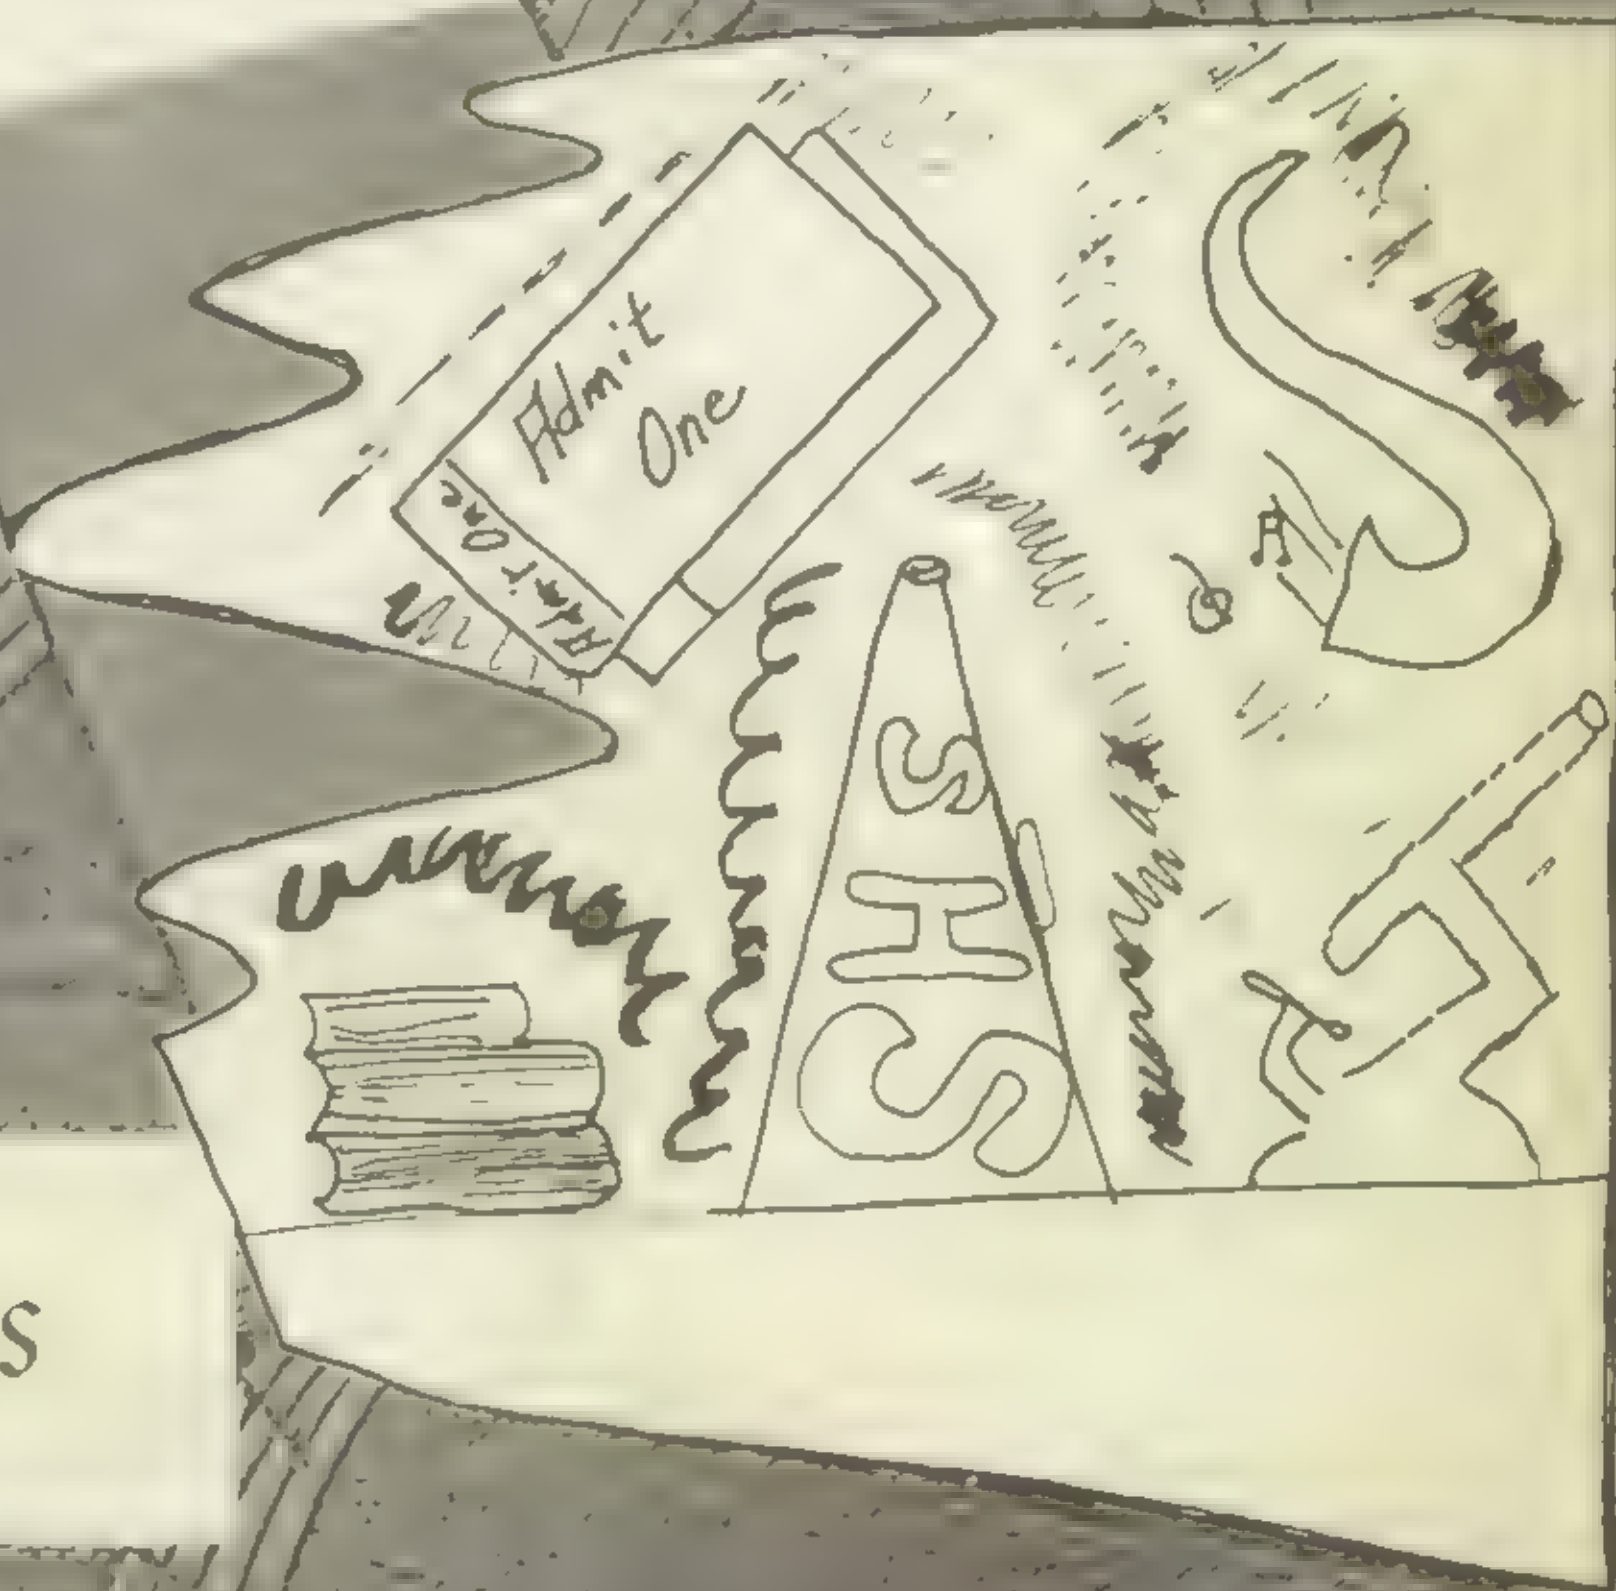 Admit
One
Admit One
S
H
S
S